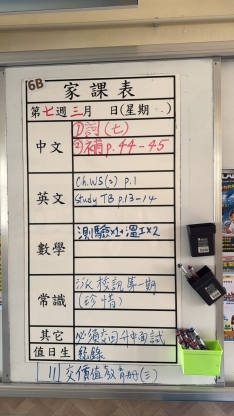 6B
家課表
第七週三月 日(星期 )
中文
①詞(七)
②補p.44-45
英文
Ch.WS(2) p.1
Study TB p.13-14
數學
測驗x1+溫Ix2
常識
派校訊第一期
(珍惜)
其它
必須交回升中面試
值日生
紀錄
11) 交價值教育冊(三)